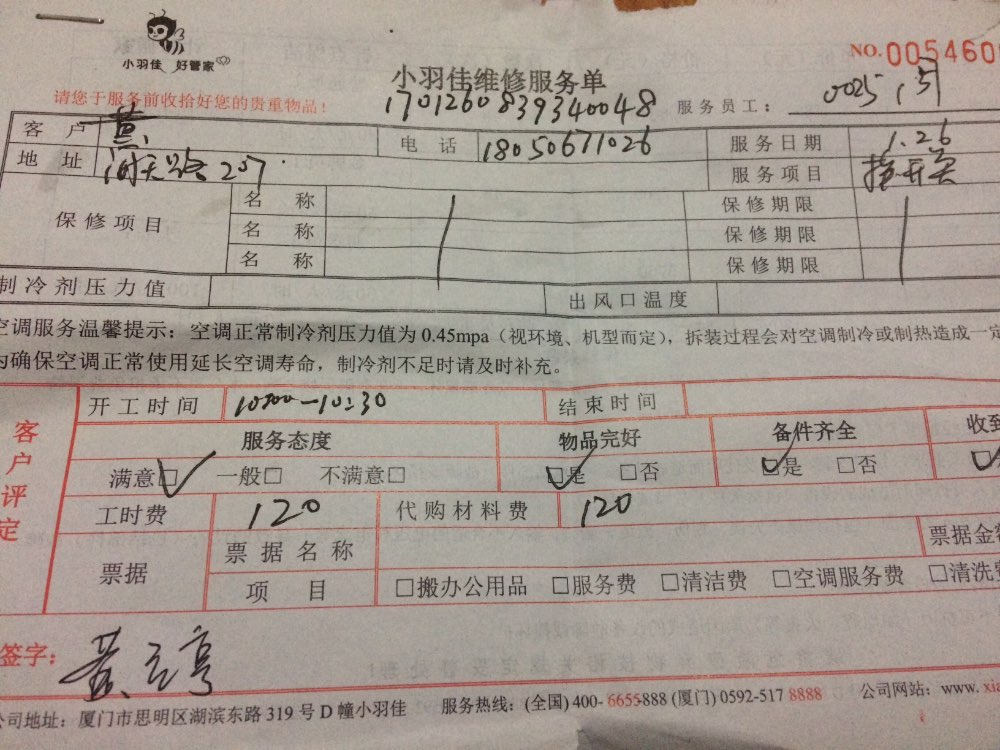 小羽佳 好管家
NO.005460
小羽佳维修服务单
请您于服务前收拾好您的贵重物品！
1701260839340048
服务员工： 0025，
客户 黄
电话 18050671026
服务日期 1.26
地址 湖天路 207
服务项目 换开关
保修项目
名称 保修期限
名称 保修期限
名称 保修期限
制冷剂压力值 出风口温度
空调服务温馨提示：空调正常制冷剂压力值为 0.45mpa（视环境、机型而定），拆装过程会对空调制冷或制热造成一定
为确保空调正常使用延长空调寿命，制冷剂不足时请及时补充。
客户评定
开工时间 10:00—10:30 结束时间
服务态度 物品完好 备件齐全 收到
满意□ 一般□ 不满意□ □是 □否 □是 □否 □
工时费 120 代购材料费 120
票据 票据名称 票据金额
项目 □搬办公用品 □服务费 □清洁费 □空调服务费 □清洗费
签字： 黄立亨
公司地址：厦门市思明区湖滨东路 319 号 D 幢小羽佳 服务热线：(全国) 400- 6655-888 (厦门) 0592-517 8888 公司网站：www. xia